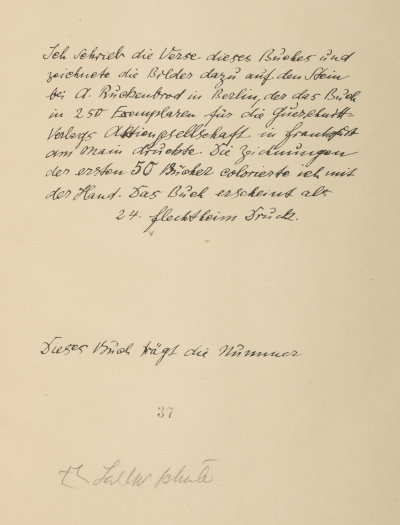 Ich schrieb die Verse dieses Buches und
zeichnete die Bilder dazu auf den Stein
bei A. Ruckenbrod in Berlin, der das Buch
in 250 Exemplaren für die Querschnitt-
Verlags Aktiengesellschaft in Frankfurt
am Main druckte. Die Zeichnungen
der ersten 50 Bücher colorierte ich mit
der Hand. Das Buch erscheint als
24. Flechtheim Druck.
Dieses Buch trägt die Nummer
37